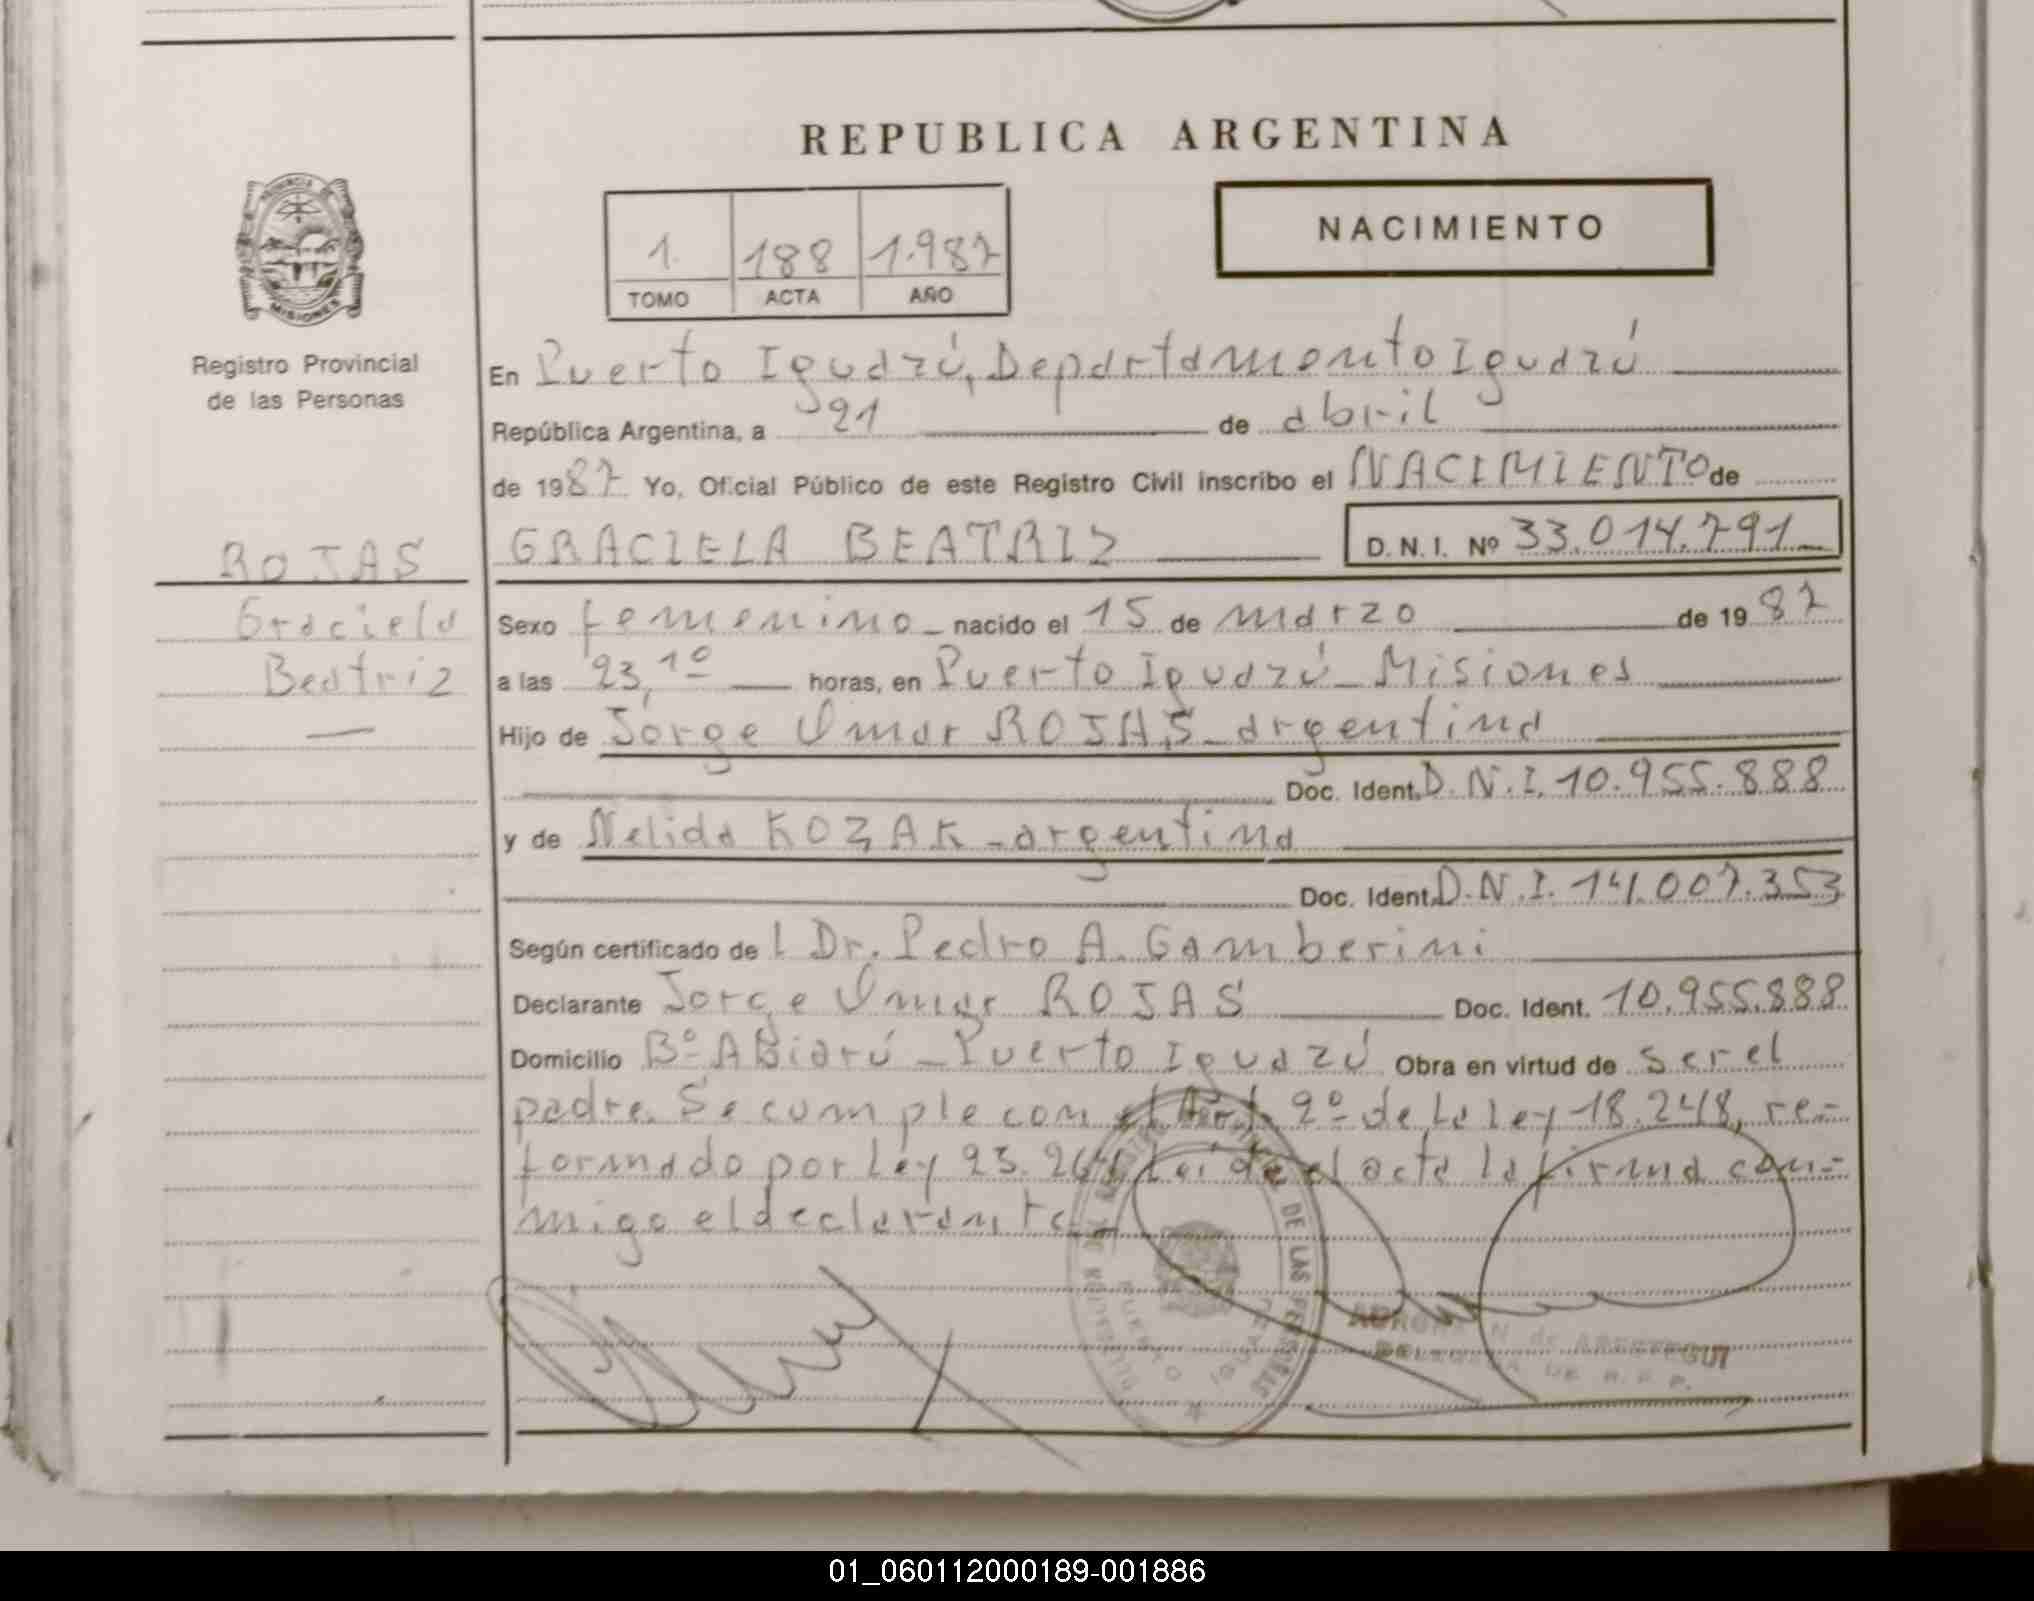 REPUBLICA ARGENTINA
NACIMIENTO
1. 188 1.987
TOMO ACTA AÑO
PROVINCIA DE MISIONES
Registro Provincial
de las Personas
ROJAS
Graciela
Beatriz
En Puerto Iguazú, Departamento Iguazú
República Argentina, a 21 de abril
de 1987 Yo, Oficial Público de este Registro Civil inscribo el NACIMIENTO de
GRACIELA BEATRIZ D.N.I. Nº 33.014.791
Sexo femenino nacido el 15 de marzo de 1987
a las 23,10 horas, en Puerto Iguazú Misiones
Hijo de Jorge Omar ROJAS argentina
Doc. Ident. D.N.I. 10.955.888
y de Nelida KOZAK argentina
Doc. Ident. D.N.I. 14.007.353
Según certificado del Dr. Pedro A. Gamberini
Declarante Jorge Omar ROJAS Doc. Ident. 10.955.888
Domicilio Bº ABiarú - Puerto Iguazú Obra en virtud de ser el
padre. Se cumple con el Art. 2º de la ley 18.248, re=
formado por Ley 23.264 Leída el acta la firma con=
migo el declarante
PUERTO IGUAZU
DE LAS PERSONAS
de ARESTEGUI
DELEGADA DE R.P.P.
01_060112000189-001886